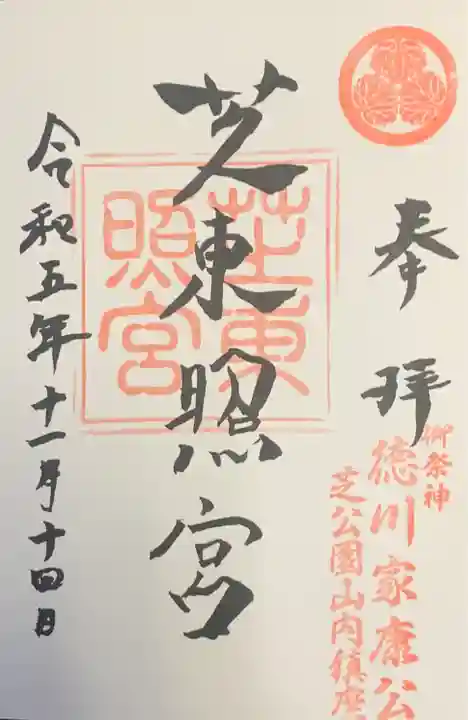 奉拝
御祭神
徳川家康公
芝公園山内鎮座
芝東照宮
芝東
照宮
令和五年十一月十四日